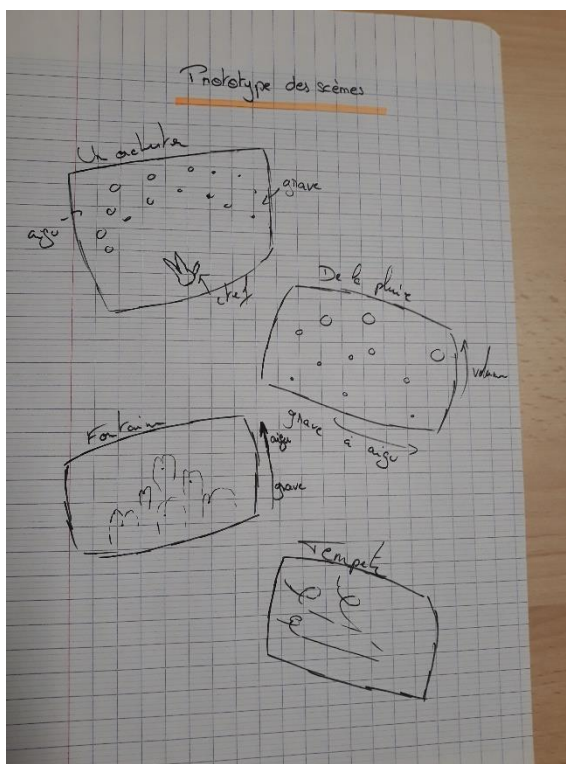 Prototype des scènes
Un orchestre
grave
aigu
chef
De la pluie
volume
grave
à aigu
Fontaine
aigu
grave
Tempete